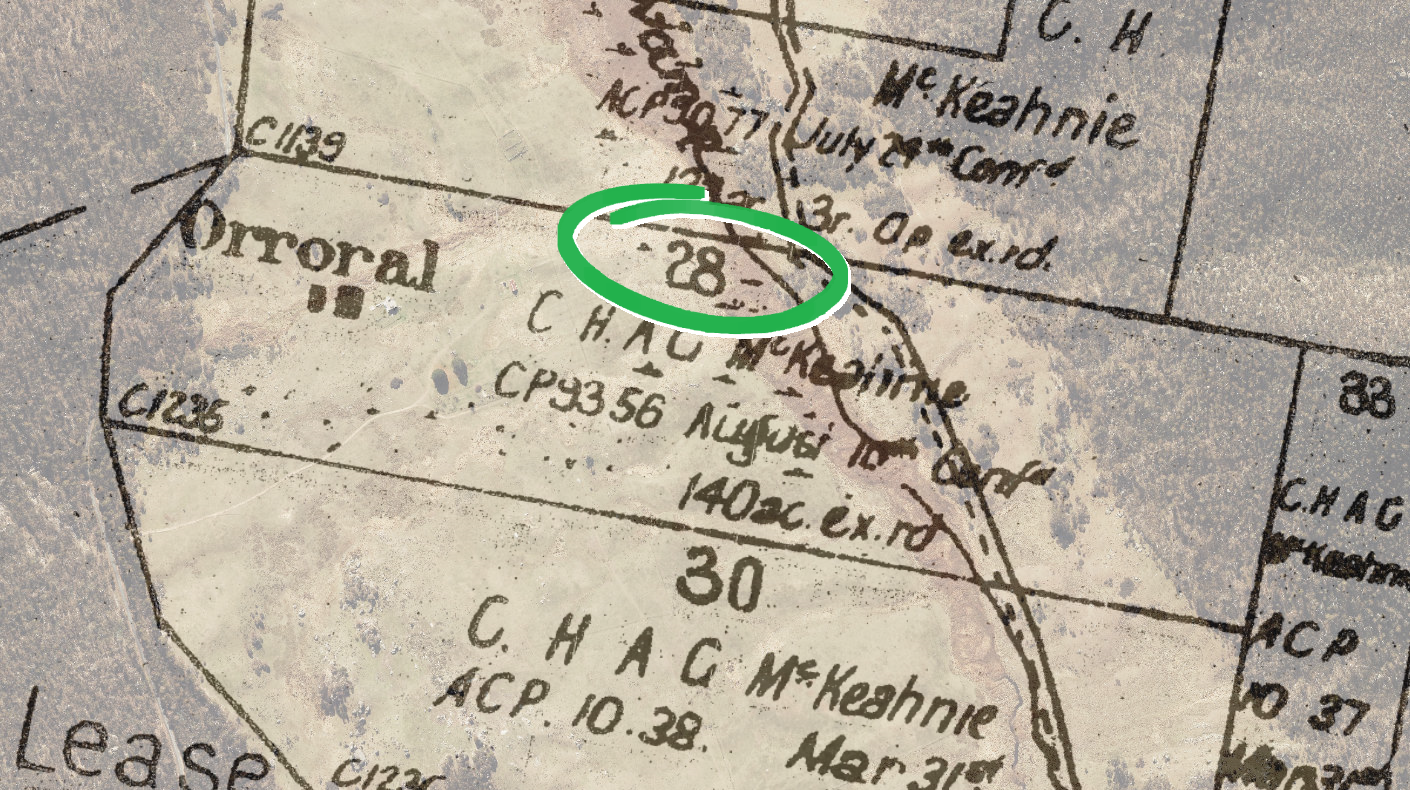 C. H
McKeahnie
ACP 90 77 July 29th Conf'd
3r. 0p ex.rd.
C1139
Orroral
28
C H. A G McKeahnie
CP9356 August 10th Conf'd
140ac. ex. rd
C1236
33
C. H A G
McKeahnie
ACP
10 37
30
C. H A G McKeahnie
ACP. 10.38. Mar 31st
Lease